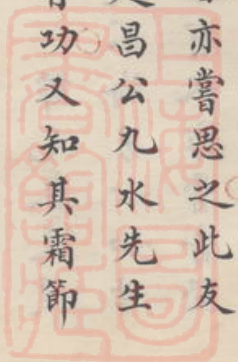 亦嘗思之此友
昌公九水先生
功又知其霜節